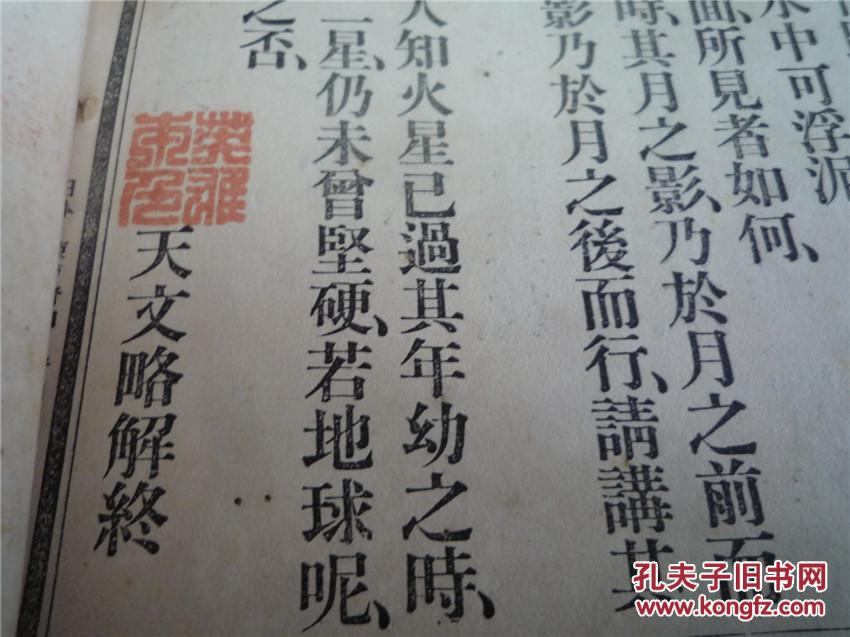 水中可浮泥
面、所見者如何、
時、其月之影、乃於月之前而
影乃於月之後而行、請講其
人知火星已過其年幼之時、
星、仍未曾堅硬、若地球呢、
之否、
天文略解終
孔夫子旧书网
www.kongfz.com